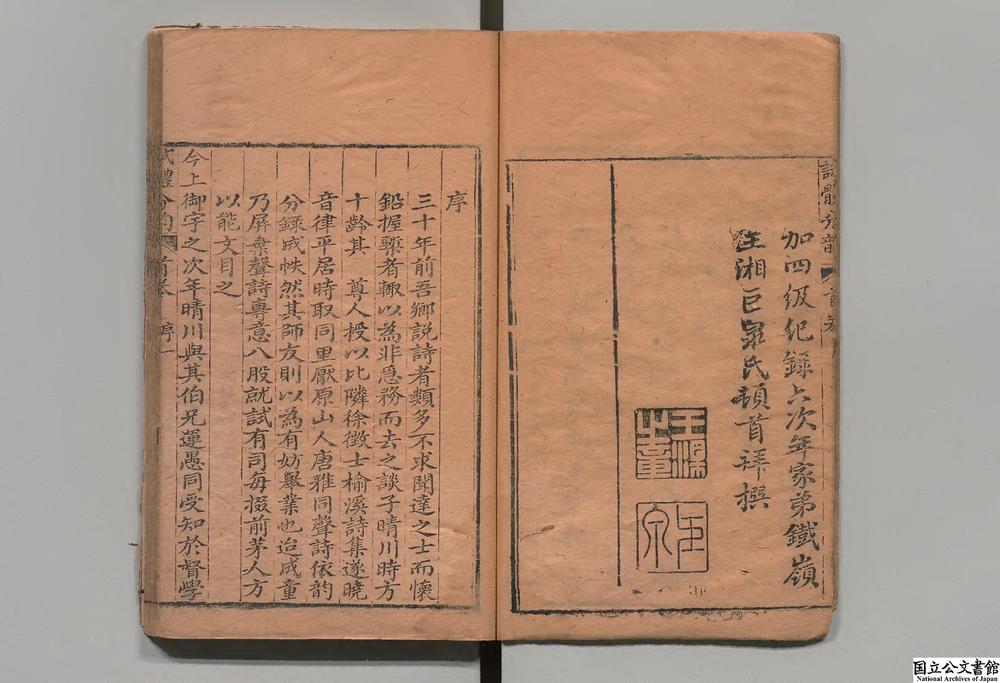 加四級紀錄六次年家弟鐵嶺
王湘巨泉氏頓首拜撰
序
三十年前吾鄉說詩者類多不求聞達之士而懷
鉛握槧者輒以為非急務而去之談子晴川時方
十齡其 尊人授以比隣徐徵士榆溪詩集遂曉
音律平居時取同里厭原山人唐雅同聲詩依韵
分錄成帙然其師友則以為有妨舉業也迨成童
乃屏棄聲詩專意八股就試有司每掇前茅人方
以能文目之
今上御宇之次年晴川與其伯兄蓮愚同受知於督學
序一
国立公文書館
National Archives of Japan